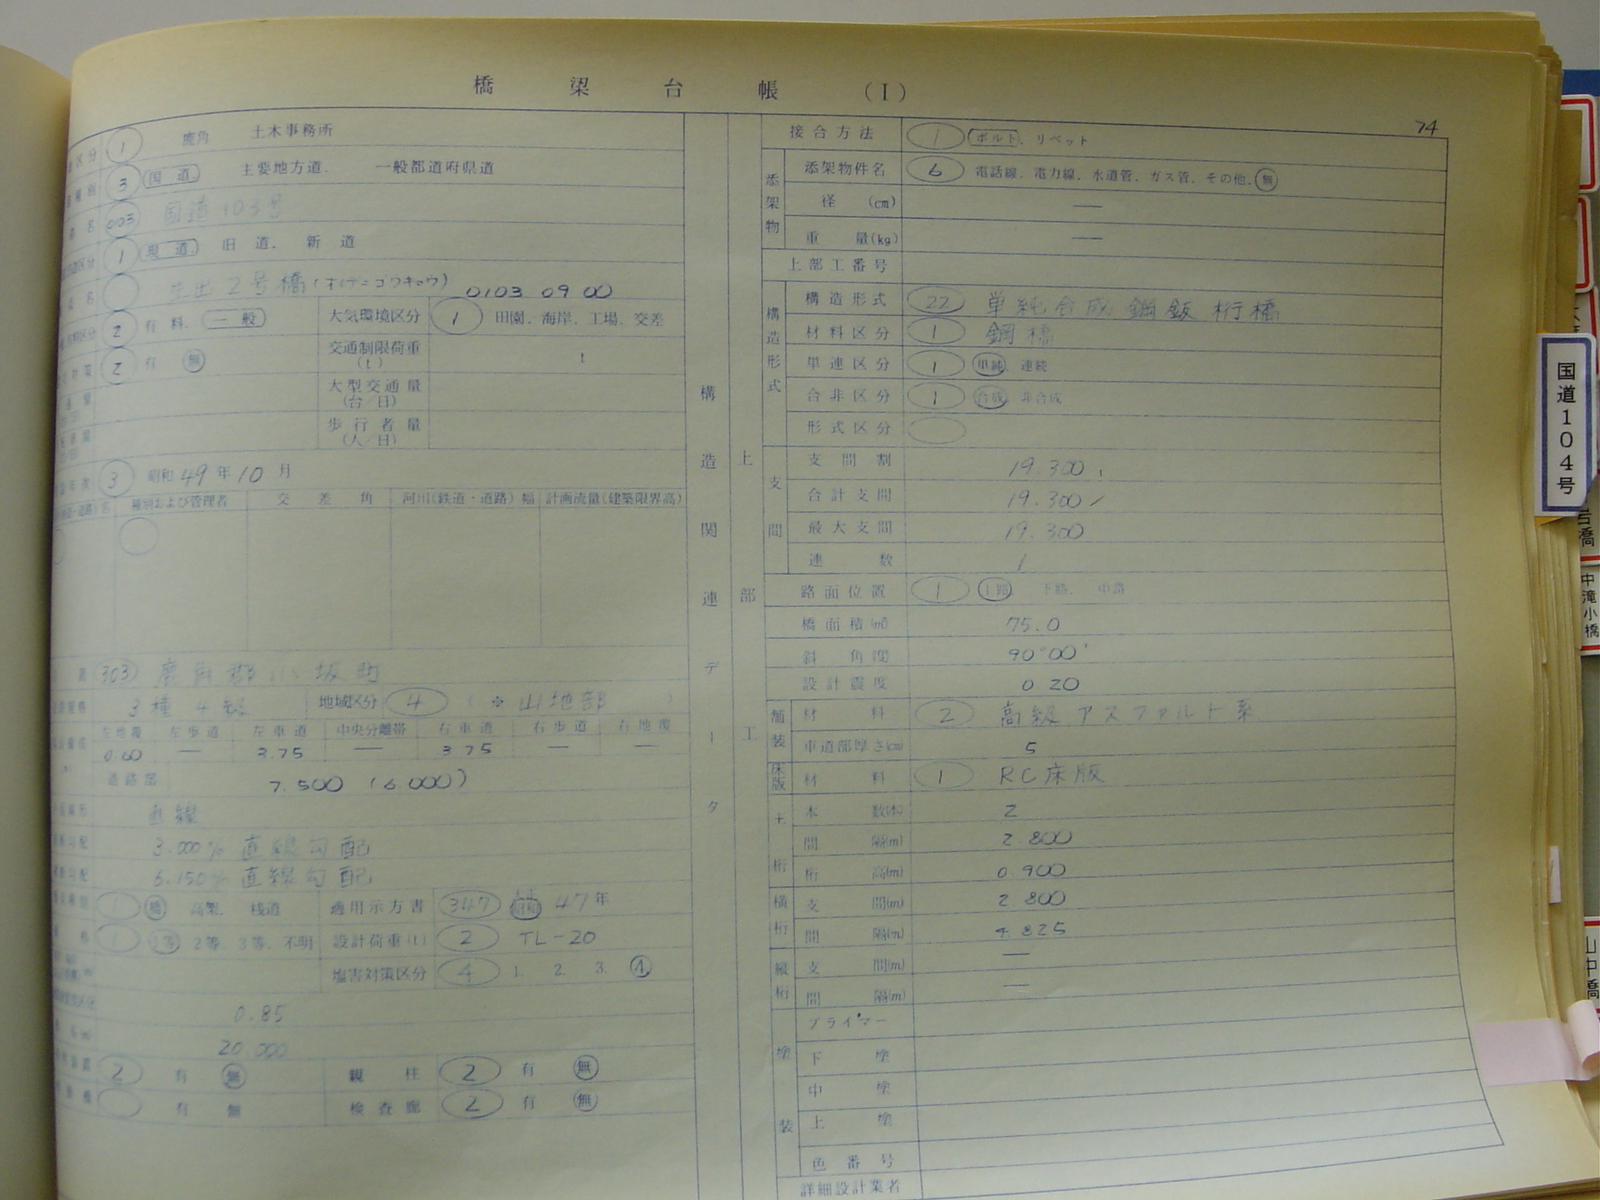 橋梁台帳(I)
74
1 鹿角 土木事務所
3 国道 主要地方道. 一般都道府県道
003 国道103号
1 現道. 旧道. 新道
生出2号橋(オイデニゴウキョウ)
0103 09 00
2 有料. 一般 大気環境区分 1 田園. 海岸. 工場. 交差
2 有 無 交通制限荷重(t) t
大型交通量(台/日)
歩行者量(人/日)
3 昭和49年10月
種別および管理者 交差角 河川(鉄道・道路)幅 計画流量(建築限界高)
303 鹿角郡小坂町
3種4級 地域区分 4 (※山地部)
左地覆 左歩道 左車道 中央分離帯 右車道 右歩道 右地覆
0.60 — 3.75 — 3.75 — —
道路部 7.500 (6.000)
直線
3.000% 直線勾配
6.150% 直線勾配
1 橋 高架. 桟道 適用示方書 347 昭和 47年
1 1等 2等. 3等. 不明 設計荷重(t) 2 TL-20
塩害対策区分 4 1. 2. 3. 4
0.85
20.000
2 有 無 親柱 2 有 無
有 無 検査廊 2 有 無
構造関連データ
上部工
接合方法 1 ボルト. リベット
添架物
添架物件名 6 電話線. 電力線. 水道管. ガス管. その他. 無
径(cm) —
重量(kg) —
上部工番号
構造形式
構造形式 22 単純合成鋼鈑桁橋
材料区分 1 鋼橋
単連区分 1 単純 連続
合非区分 1 合成 非合成
形式区分
支間
支間割 19.300
合計支間 19.300
最大支間 19.300
連数 1
路面位置 1 上路 下路. 中路
橋面積(㎡) 75.0
斜角度 90°00'
設計震度 0.20
舗装
材料 2 高級アスファルト系
車道部厚さ(cm) 5
床版 材料 1 RC床版
主桁
本数(本) 2
間隔(m) 2.800
桁高(m) 0.900
横桁
支間(m) 2.800
間隔(m) 4.825
縦桁
支間(m) —
間隔(m) —
塗装
プライマー
下塗
中塗
上塗
色番号
詳細設計業者
国道104号
号橋
中滝小橋
山中橋